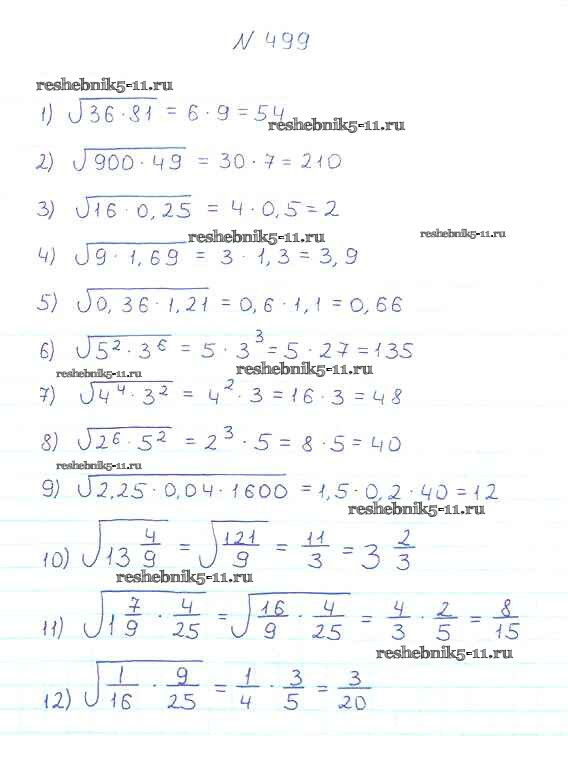 N 499
reshebnik5-11.ru
1) √36·81 = 6·9 = 54
reshebnik5-11.ru
2) √900·49 = 30·7 = 210
3) √16·0,25 = 4·0,5 = 2
reshebnik5-11.ru reshebnik5-11.ru
4) √9·1,69 = 3·1,3 = 3,9
5) √0,36·1,21 = 0,6·1,1 = 0,66
6) √5²·3⁶ = 5·3³ = 5·27 = 135
reshebnik5-11.ru reshebnik5-11.ru
7) √4⁴·3² = 4²·3 = 16·3 = 48
8) √2⁶·5² = 2³·5 = 8·5 = 40
reshebnik5-11.ru
9) √2,25·0,04·1600 = 1,5·0,2·40 = 12
reshebnik5-11.ru
10) √13 4/9 = √121/9 = 11/3 = 3 2/3
reshebnik5-11.ru
11) √1 7/9 · 4/25 = √16/9 · 4/25 = 4/3 · 2/5 = 8/15
reshebnik5-11.ru
12) √1/16 · 9/25 = 1/4 · 3/5 = 3/20